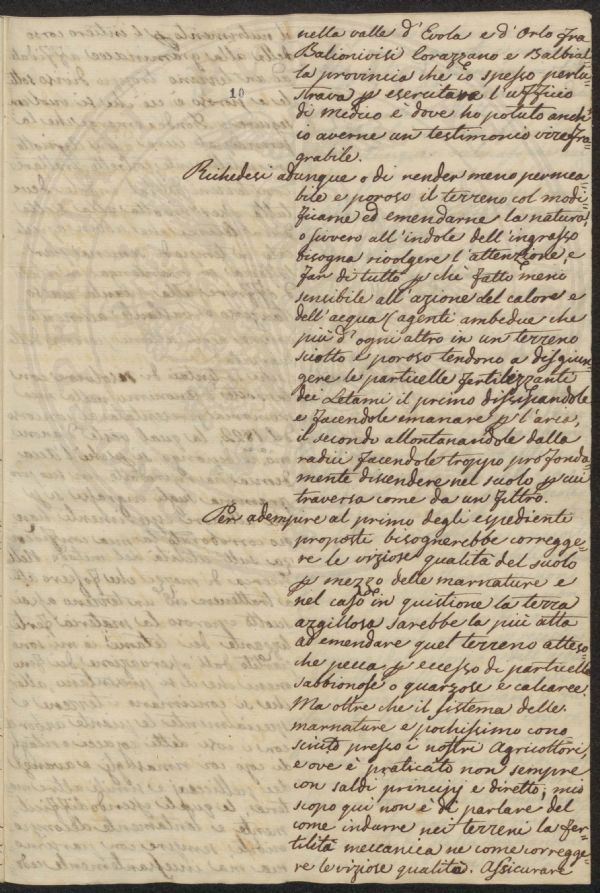 nella valle d'Evola e d'Orlo fra
Balionivisi Corazzano e Balbial=
la provincia che io spesso perlu=
strava p esercitare l'uffizio
10
di medico e dove ho potuto anch'
io averne un testimonio virefra=
grabile.
Richedesi adunque o di render meno permea=
bile e poroso il terreno col modi=
ficarne ed emendarne la natura,
o sivvero all'indole dell'ingrasso
bisogna rivolgere l'attenzione e
far di tutto p chè fatto meno
sensibile all'azione del calore e
dell'acqua (agenti ambedue che
più d'ogni altro in un terreno
sciolto e poroso tendono a disgiun=
gere le particelle fertilizzanti
dei Letami il primo dissipandole
e facendole emanare p l'aria,
il secondo allontanandole dalla
radici facendole troppo profonda=
mente discendere nel suolo p cui
traversa come da un filtro.
Per adempire al primo degli espedienti
proposti bisognerebbe corregge=
re le viziose qualità del suolo
p mezzo delle marnature e
nel caso in quistione la terra
argillosa sarebbe la più atta
ad emendare quel terreno atteso
che pecca p eccesso di particelle
sabbionose o quarzose e calcaree.
Ma oltre che il sistema delle
marnature e pochissimo cono=
sciuto presso i nostri Agricoltori,
e ove è praticato non sempre
con saldi principj e diretto, mio
scopo qui non è di parlare del
come indurre nei terreni la fer=
tilità meccanica ne come corregge=
re le viziose qualità. Assicurare